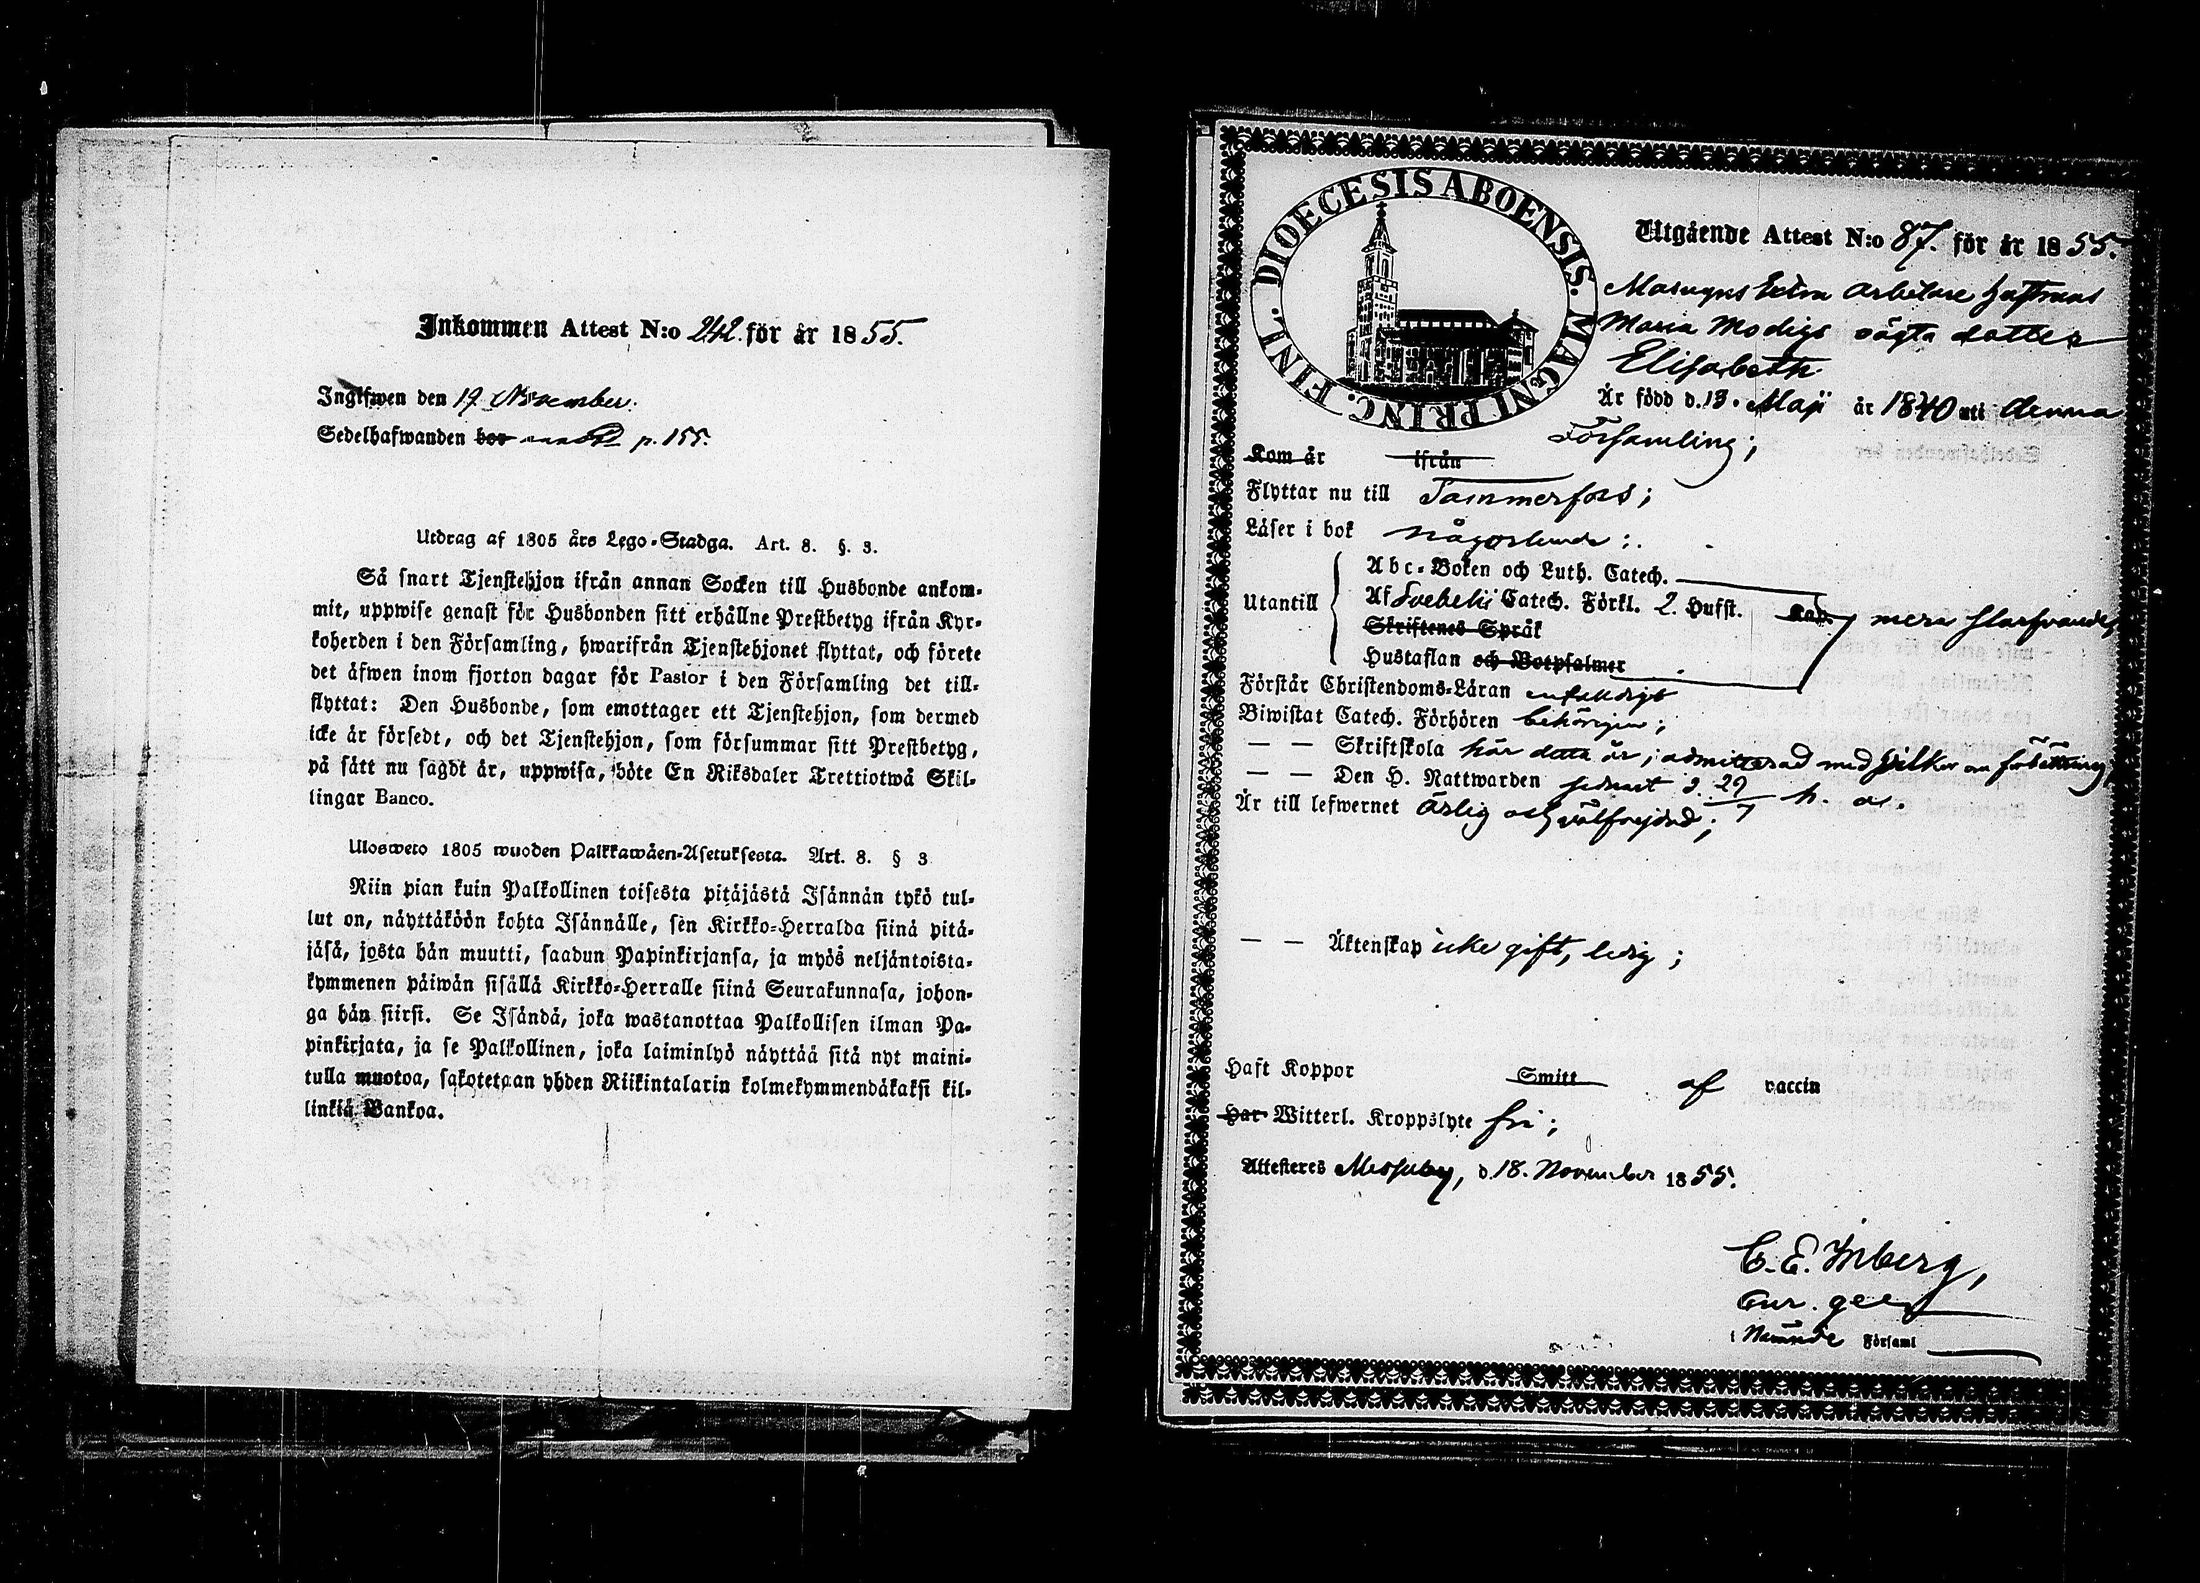 Inkommen Attest N:o 242. för år 1855.
Ingifwen den 19 November.
Sedelhafwanden bor p. 155.
Utdrag af 1805 års Lego-Stadga. Art. 8. §. 3.
Så snart Tjenstehjon ifrån annan Socken till Husbonde ankom-
mit, uppwise genast för Husbonden sitt erhållne Prestbetyg ifrån Kyr-
koherden i den Församling, hwarifrån Tjenstehjonet flyttat, och förete
det äfwen inom fjorton dagar för Pastor i den Församling det till-
flyttat: Den Husbonde, som emottager ett Tjenstehjon, som dermed
icke är försedt, och det Tjenstehjon, som försummar sitt Prestbetyg,
på sätt nu sagdt är, uppwisa, böte En Riksdaler Trettiotwå Skil-
lingar Banco.
Ulosweto 1805 wuoden Palkkawäen-Asetuksesta. Art. 8. § 3
Niin pian kuin Palkollinen toisesta pitäjästä Isännän tykö tul-
lut on, näyttäköön kohta Isännälle, sen Kirkko-Herralda siinä pitä-
jäsä, josta hän muutti, saadun Papinkirjansa, ja myös neljäntoista-
kymmenen päiwän sisällä Kirkko-Herralle siinä Seurakunnasa, johon-
ga hän siirsi. Se Isändä, joka wastanottaa Palkollisen ilman Pa-
pinkirjata, ja se Palkollinen, joka laiminlyö näyttää sitä nyt maini-
tulla muotoa, sakotetaan yhden Riikintalarin kolmekymmendäkaksi kil-
linkiä Bankoa.
DIOECESIS ABOENSIS. MAGNI PRINC. FINL.
Utgående Attest N:o 87. för år 1855.
Masugns Extra Arbetare
Maria Modigs oägta dotter
Elisabeth
Är född d. 13. Maji år 1840 uti denna
Församling;
Kom år ifrån
Flyttar nu till Tammerfors;
Läser i bok någorlunda;
Utantill
Abc-Boken och Luth. Catech.
Af Svebelii Catech. Förkl. 2. Hufst. Kap. mera slarfvande;
Skriftenes Språk
Hustaflan och Botpsalmer
Förstår Christendoms-Läran enfaldigt
Biwistat Catech. Förhören behörigen;
— — Skriftskola här detta år; admitterad med vilkor om förbättring,
— — Den H. Nattwarden sednast d. 29/7 h. a.
Är till lefwernet ärlig och välfrejdad;
— — Äktenskap icke gift, ledig;
Haft Koppor Smitt af vaccin
Har Witterl. Kroppslyte fri;
Attesteres Messuby, d. 18. November 1855.
C. E. Inberg,
i Nämnde Församl